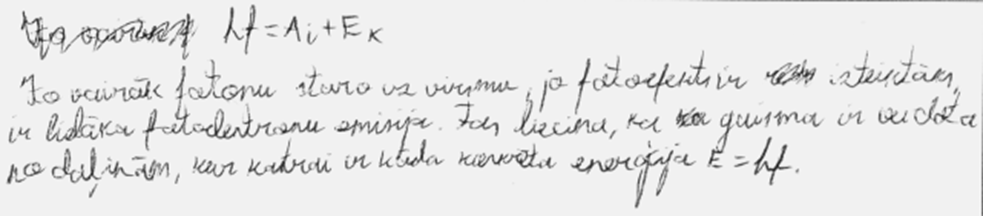 hf = Ai + EK
Jo vairāk fotonu staro uz virsmu, jo fotoefekts ir izteiktāks,
ir lielāka fotoelektronu emisija. Tas liecina, ka gaisma ir veidota
no daļiņām, kur katrai ir kāda konkrēta enerģija E = hf.